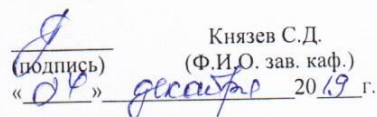 Князев С.Д.
(подпись) (Ф.И.О. зав. каф.)
«04» декабря 2019г.